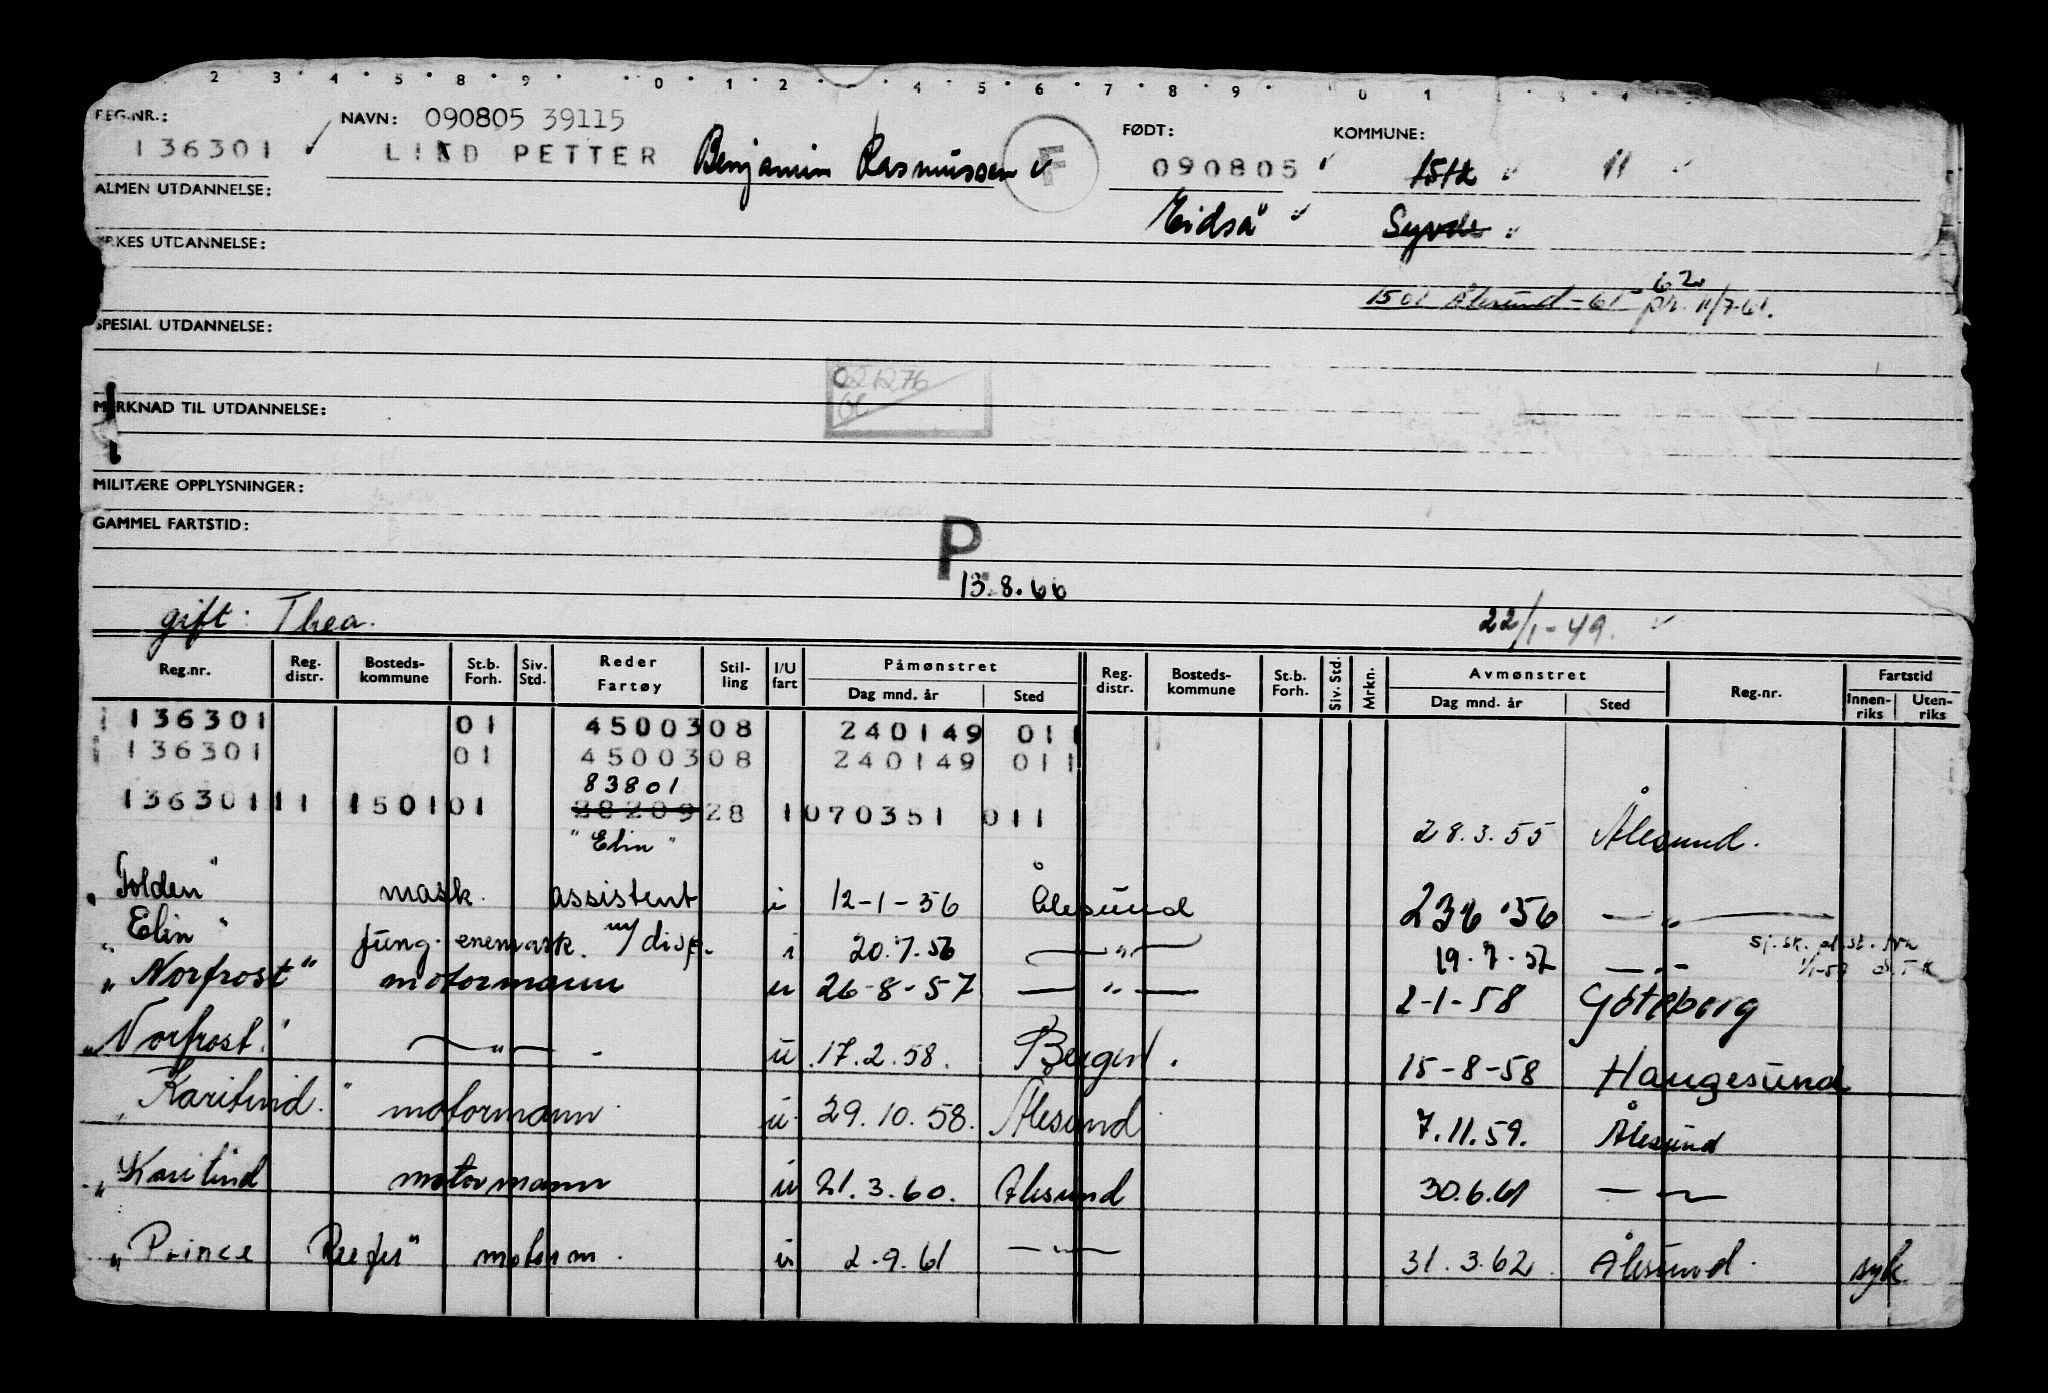 2 . 3 . 4 . 5 . 8 . 9 . . 0 . 1 . 2 . . 4 . 5 . 6 . 7 . 8 . 9 . . 0 1
REG.NR.: NAVN: 090805 39115 FØDT: KOMMUNE:
136301 ✓ LIND PETTER Benjamin Rasmussen F 090805 1514 11
ALMEN UTDANNELSE:
Eidså Syvde
YRKES UTDANNELSE:
1501 Ålesund - 61 - 62 pr. 11/7-61.
SPESIAL UTDANNELSE:
021276
MERKNAD TIL UTDANNELSE:
MILITÆRE OPPLYSNINGER:
GAMMEL FARTSTID:
P
13.8.66
gift: Thea. 22/1-49.
Reg.nr. Reg. distr. Bosteds-kommune St.b. Forh. Siv. Std. Reder Fartøy Stil-ling I/U fart Påmønstret Dag mnd. år Sted Reg. distr. Bosteds-kommune St.b. Forh. Siv. Std. Mrkn. Avmønstret Dag mnd. år Sted Reg.nr. Fartstid Innen-riks Uten-riks
136301 01 4500308 240149 011
136301 01 4500308 240149 011
83801
136301 11 1501 01 28209 28 1 070351 011
"Elin" 28.3.55 Ålesund.
"Golden" mask. assistent i 12-1-56 Ålesund 236.56 — " —
"Elin" fung. enemask. m/disp. i 20.7.56 — " — 19.7.57 — " — sj.sk.
"Norfrost" motormann u 26-8-57 — " — 2-1-58 Göteborg
"Norfrost" — " — u 17.2.58. Bergen. 15-8-58 Haugesund
"Karitind." motormann u 29.10.58. Ålesund 7.11.59. Ålesund
"Karitind motormann u 21.3.60. Ålesund 30.6.61 — " —
"Prince Reefer" motorm. u 2.9.61 — " — 31.3.62 Ålesund. syk